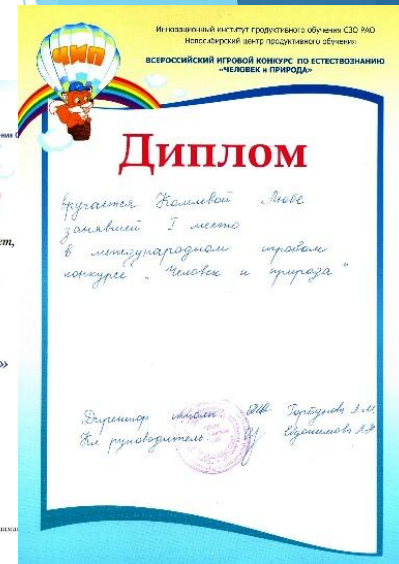 Инновационный институт продуктивного обучения СЗО РАО
Новосибирский центр продуктивного обучения
ВСЕРОССИЙСКИЙ ИГРОВОЙ КОНКУРС ПО ЕСТЕСТВОЗНАНИЮ
«ЧЕЛОВЕК и ПРИРОДА»
ЧИП
Диплом
вручается Комлевой Любе
занявшей I место
в международном игровом
конкурсе „Человек и природа"
Директор школы: Горбунова А.М
Кл. руководитель: Евдокимова